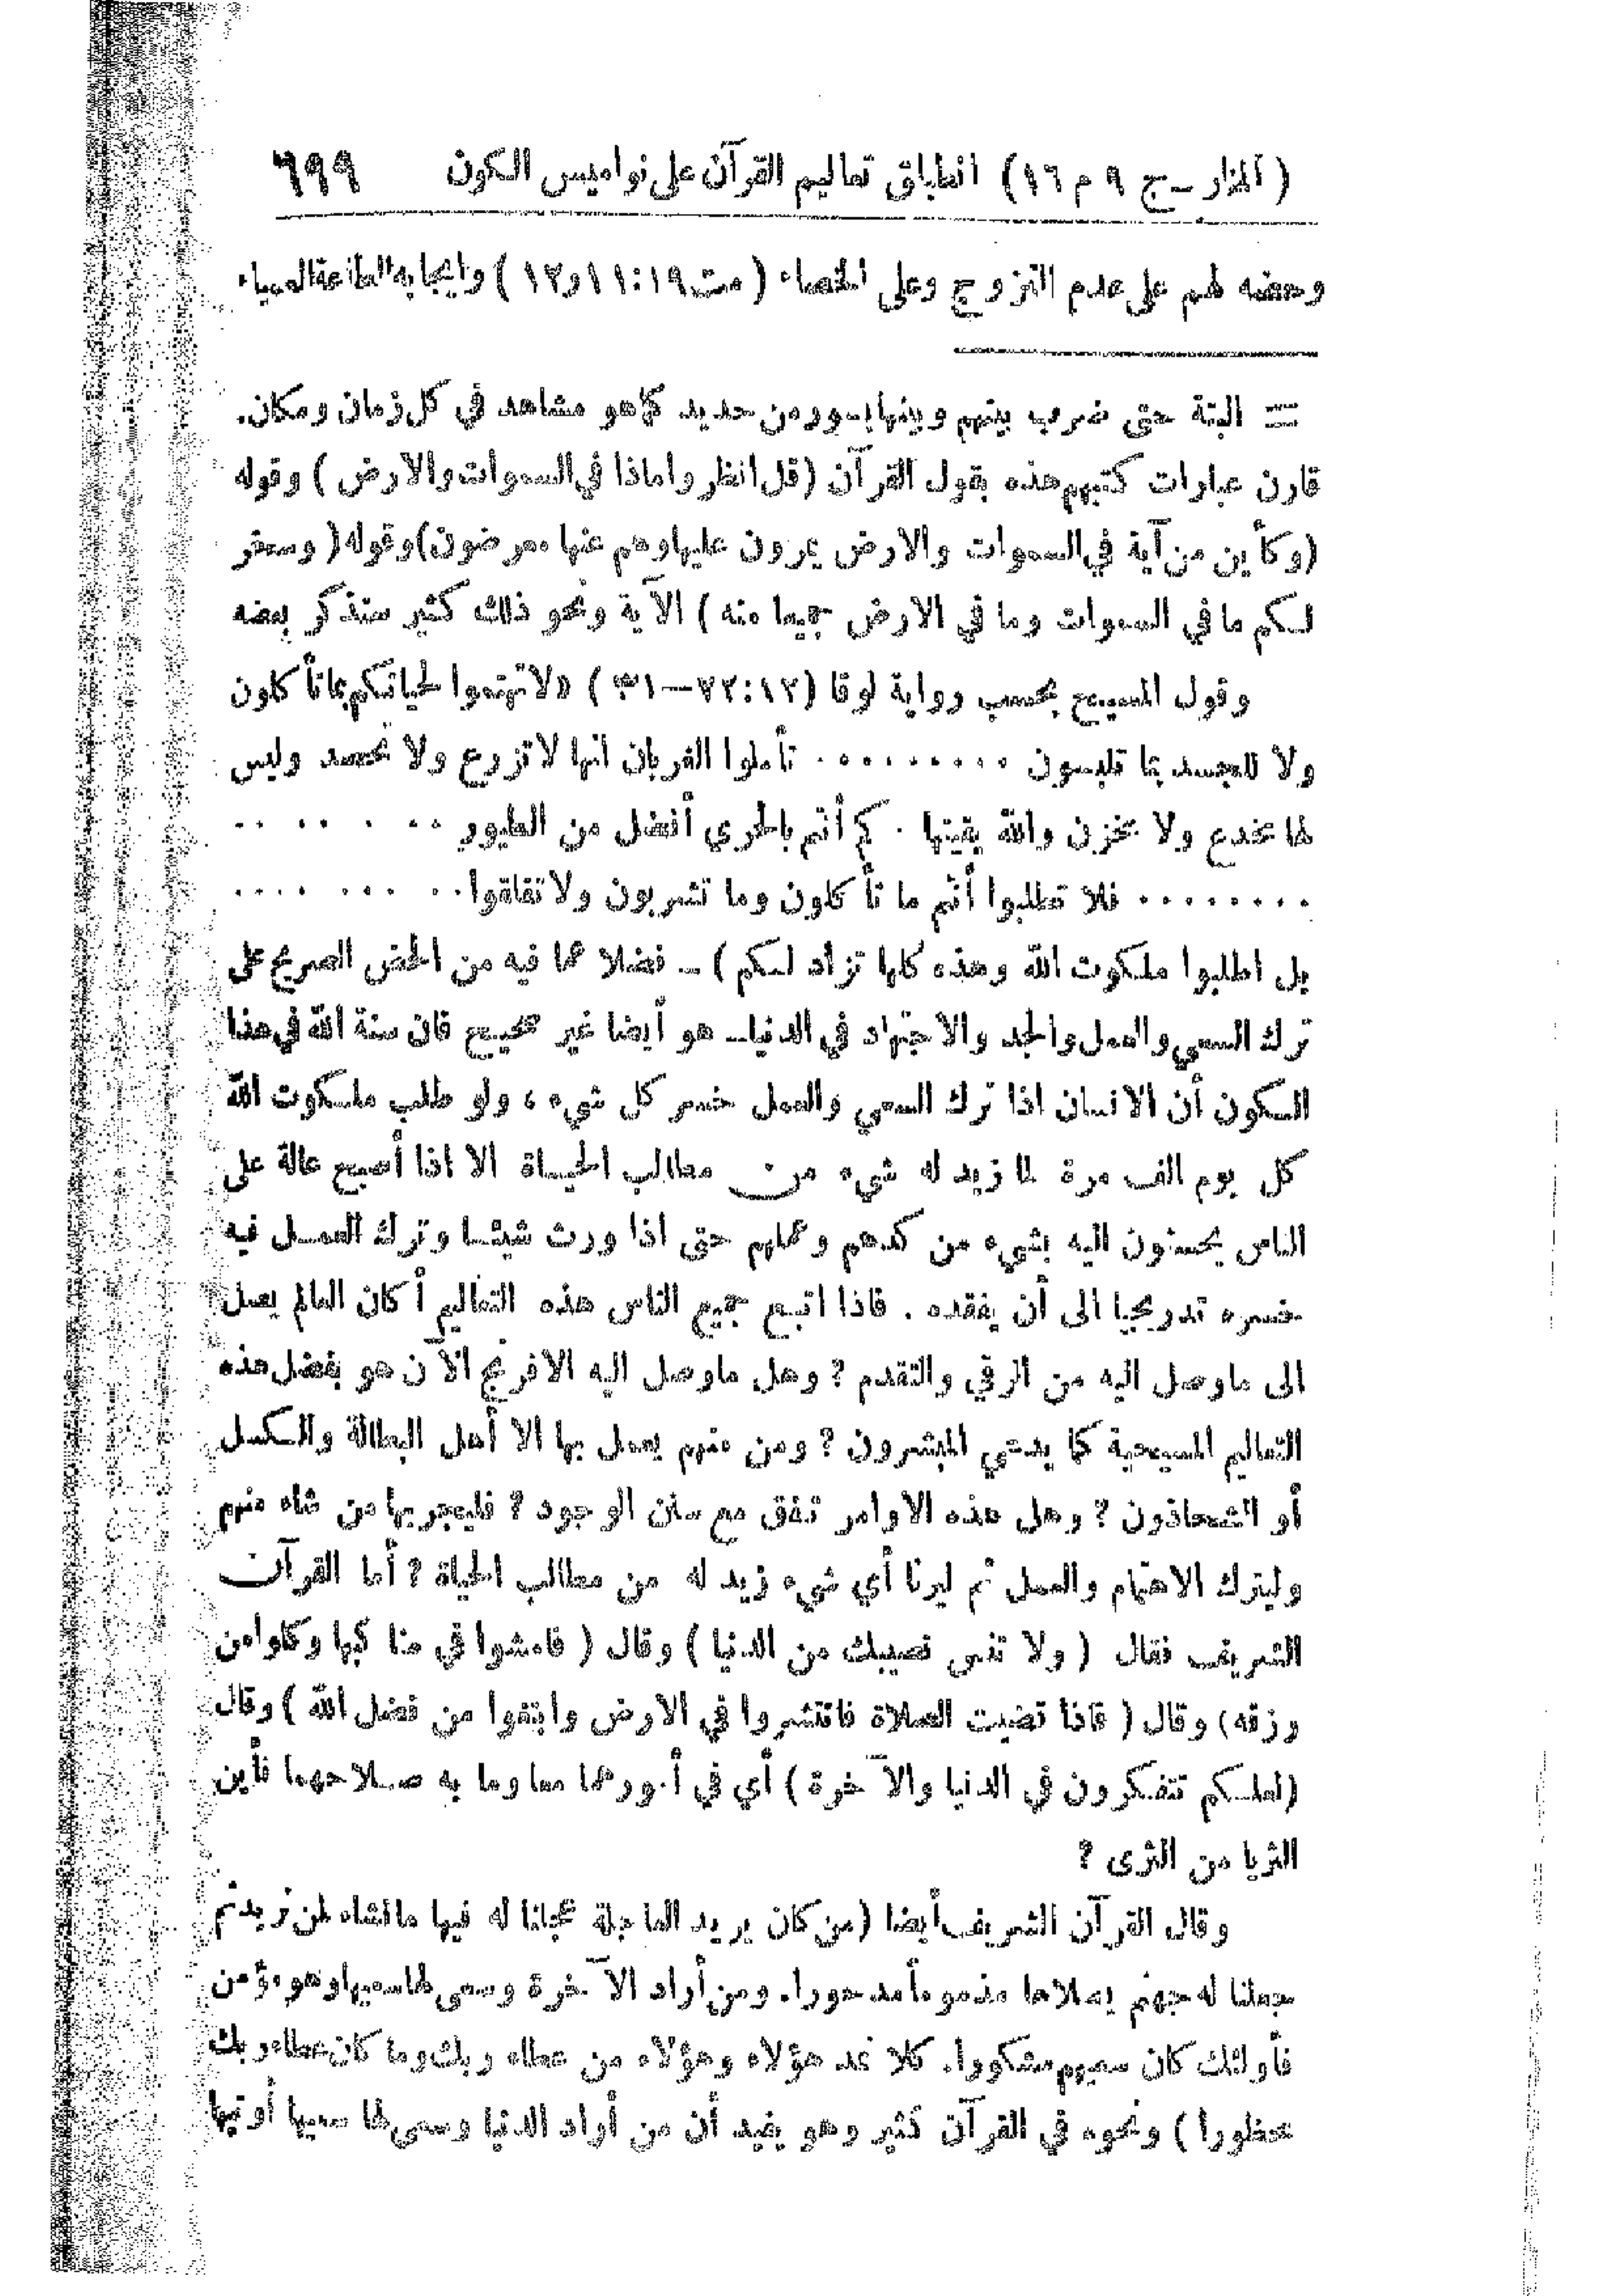 (المنار ــ ج ٩ م ١٦) انطباق تعاليم القرآن على نواميس الكون ٦٩٩
وحضه لهم على عدم التزوج وعلى الخصاء (مت ١٩:١١و١٢) وايجابه الطاعة العمياء
= البتة حتى ضرب بينهم وبينها بسور من حديد كما هو مشاهد في كل زمان ومكان.
قارن عبارات كتبهم هذه بقول القرآن (قل انظروا ماذا في السموات والارض) وقوله
(وكأين من آية في السموات والارض يمرون عليها وهم عنها معرضون) وقوله (وسخر
لكم ما في السموات وما في الارض جميعا منه) الآية ونحو ذلك كثير ستذكر بعضه
وقول المسيح بحسب رواية لوقا (١٢:٢٢—٣١) «لا تهتموا لحياتكم بما تأكلون
ولا للجسد بما تلبسون ......... تأملوا الغربان انها لا تزرع ولا تحصد وليس
لها مخدع ولا مخزن والله يقيتها . كم أنتم بالحري أفضل من الطيور .. . .. ..
........ فلا تطلبوا أنتم ما تأكلون وما تشربون ولا تقلقوا .. ... ....
بل اطلبوا ملكوت الله وهذه كلها تزاد لكم) ــ فضلا عما فيه من الحض الصريح على
ترك السعي والعمل والجد والاجتهاد في الدنيا ــ هو أيضا غير صحيح فان سنة الله في هذا
الكون أن الانسان اذا ترك السعي والعمل خسر كل شيء ، ولو طلب ملكوت الله
كل يوم الف مرة لما زيد له شيء من مطالب الحياة الا اذا أصبح عالة على
الناس يحسنون اليه بشيء من كدهم وعملهم حتى اذا ورث شيئا وترك العمل فيه
خسره تدريجيا الى أن يفقده . فاذا اتبع جميع الناس هذه التعاليم أكان العالم يصل
الى ما وصل اليه من الرقي والتقدم ? وهل ما وصل اليه الافرنج الآن هو بفضل هذه
التعاليم المسيحية كما يدعي المبشرون ? ومن منهم يعمل بها الا أهل البطالة والكسل
أو الشحاذون ? وهل هذه الاوامر تتفق مع سنن الوجود ? فليجربها من شاء منهم
وليترك الاهتمام والعمل ثم ليرنا أي شيء زيد له من مطالب الحياة ? أما القرآن
الشريف فقال (ولا تنس نصيبك من الدنيا) وقال (فامشوا في مناكبها وكلوا من
رزقه) وقال (فاذا قضيت الصلاة فانتشروا في الارض وابتغوا من فضل الله) وقال
(لعلكم تتفكرون في الدنيا والآخرة) أي في أمورهما معا وما به صلاحهما فأين
الثريا من الثرى ?
وقال القرآن الشريف أيضا (من كان يريد العاجلة عجلنا له فيها ما نشاء لمن نريد ثم
جعلنا له جهنم يصلاها مذموماً مدحورا. ومن أراد الآخرة وسعى لها سعيها وهو مؤمن
فأولئك كان سعيهم مشكورا. كلا نمد هؤلاء وهؤلاء من عطاء ربك وما كان عطاء ربك
محظورا) ونحوه في القرآن كثير وهو يفيد أن من أراد الدنيا وسعى لها سعيها أوتيها